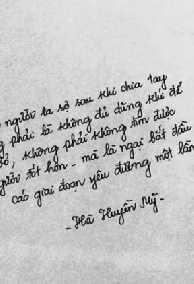 người ta sợ sau khi chia tay
phải là không đủ dũng khí để
, không phải không tìm được
người tốt hơn - mà là ngại bắt đầu
các giai đoạn yêu đương một lần
- Hà Huyền My -